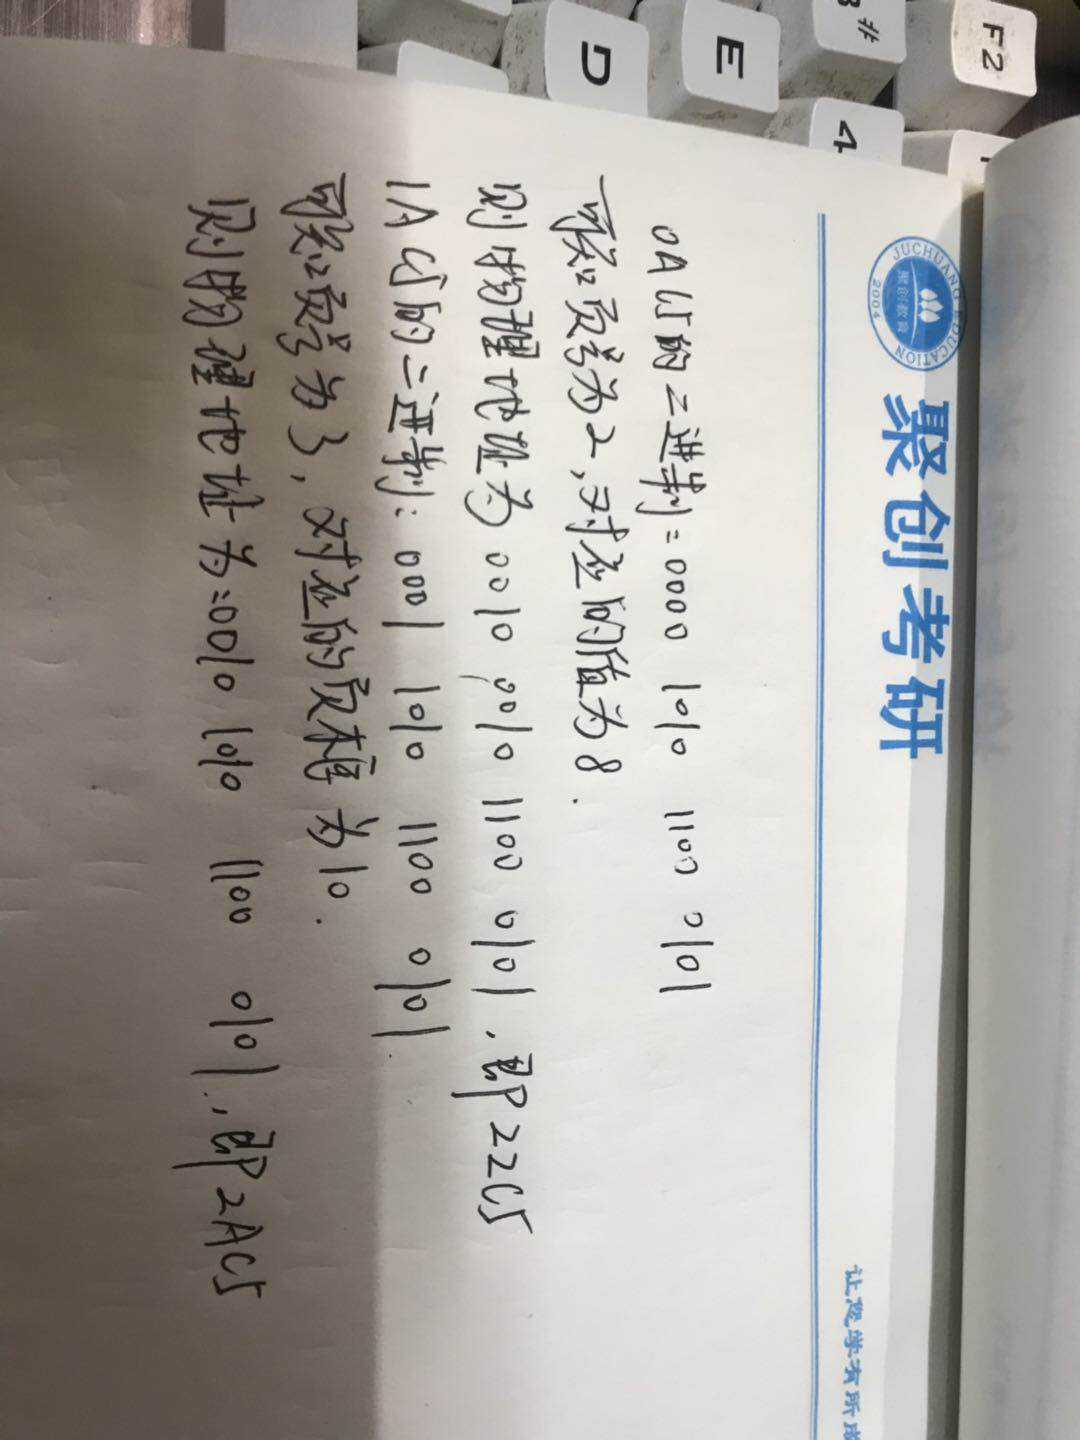 F2
#
E
4
D
JUCHUANG EDUCATION
聚创教育
2004
聚创考研
让您学有所成
0AC5的二进制=0000 1010 1100 0101
可知页号为2,对应的值为8.
则物理地址为0010 0010 1100 0101,即22C5
1AC5的二进制:0001 1010 1100 0101.
可知页号为3,对应的页框为10.
则物理地址为:0010 1010 1100 0101.,即2AC5